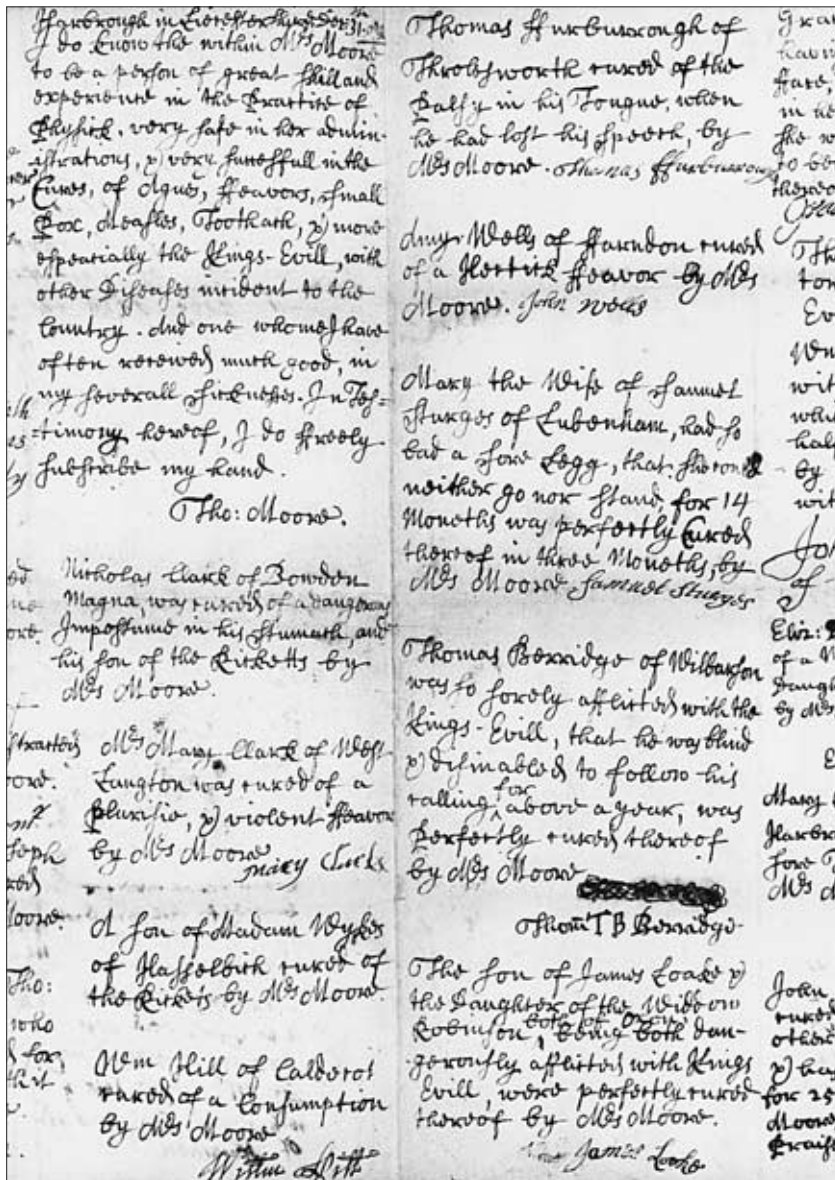 Harbrough in Leicestershire Decr 31
I do know the within Mrs Moore
to be a person of great skill and
experience in the Practice of
Physick, very safe in her admin-
istrations, & very successfull in the
Cures, of Agues, ffeavors, small
Pox, Measles, Toothach, & more
especially the Kings-Evill, with
other Diseases incident to the
Country. And one whome I have
often received much good, in
my severall sicknesses. In Tes-
=timony hereof, I do ffreely
subscribe my hand.
Tho: Moore.
Nicholas Clark of Bowden
Magna, was cured of a dangerous
Impostume in his stumach, and
his son of the Ricketts by
Mrs Moore.
Mrs Mary Clark of West
Langton was cured of a
Plurisie, & violent ffeavor
by Mrs Moore
Mary Clarke
A son of Madam Wykes
of Hasselbich cured of
the Rickets by Mrs Moore.
Wm Hill of Caldecot
cured of a Consumption
by Mrs Moore
Thomas ffurburrough of
cured of the
Palsy in his Tongue, when
he had lost his speech, by
Mrs Moore. Thomas ffurburrough
Amy Wells of ffarndon cured
of a Hectick ffeavor by Mrs
Moore. John Wells
Mary the Wife of Samuel
Sturges of Lubenham, had so
bad a sore Legg, that she could
neither go nor stand, for 14
Moneths was perfectly Cured
thereof in three Moneths, by
Mrs Moore Samuel Sturges
Thomas Berridge of Wilbarson
was so sorely afflicted with the
Kings-Evill, that he was blind
& disinabled to follow his
calling for above a year, was
Perfectly cured thereof
by Mrs Moore
Thom T B Berridge
The son of James Loake &
the Daughter of the Widdow
Robinson, both of being both dan-
gerously afflicted with Kings
Evill, were perfectly cured
thereof by Mrs Moore.
James Looke
in he
she w
to be
thereo
Evi
wit
by
wit
of
Eliz:
of a
Daught
by Mrs
Mary
Harbr
sore
John
cured
other
& ha
for 25
Moore
Praise